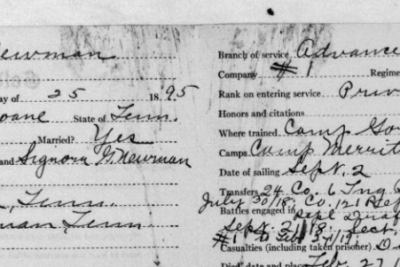 ewman
ay of 25 1895
oane State of Tenn.
Married? Yes
and Signora G. Newman
Tenn.
man, Tenn
Branch of service Advance
Company #1 Regime
Rank on entering service Priv
Honors and citations
Where trained Camp Go
Camps Camp Merrit
Date of sailing Sept. 2
Transfers 24 Co. 6 Tng
July 30/18. Co. 121
Battles engaged in Repl
Sept. 2/18.
#1
Casualties (including taken prisoner)
Died, date and place Feb. 27